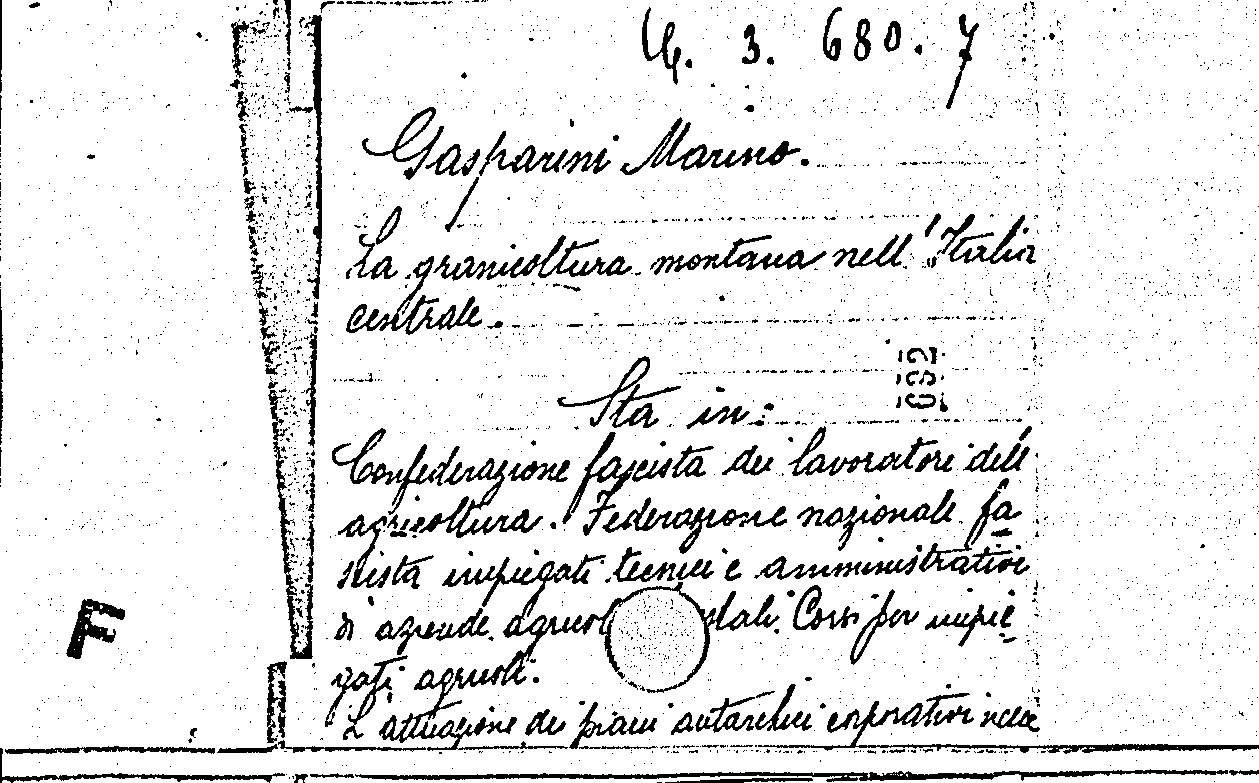 G. 3. 680. 7
Gasparini Marino.
La granicoltura montana nell' Italia
centrale.
Sta in:
Confederazione fascista dei lavoratori dell'
agricoltura. Federazione nazionale fa
scista impiegati tecnici e amministrativi
di aziende agricol Corsi per impie
gati agricoli.
L'attuazione dei piani autarchici corporativi nelle
F